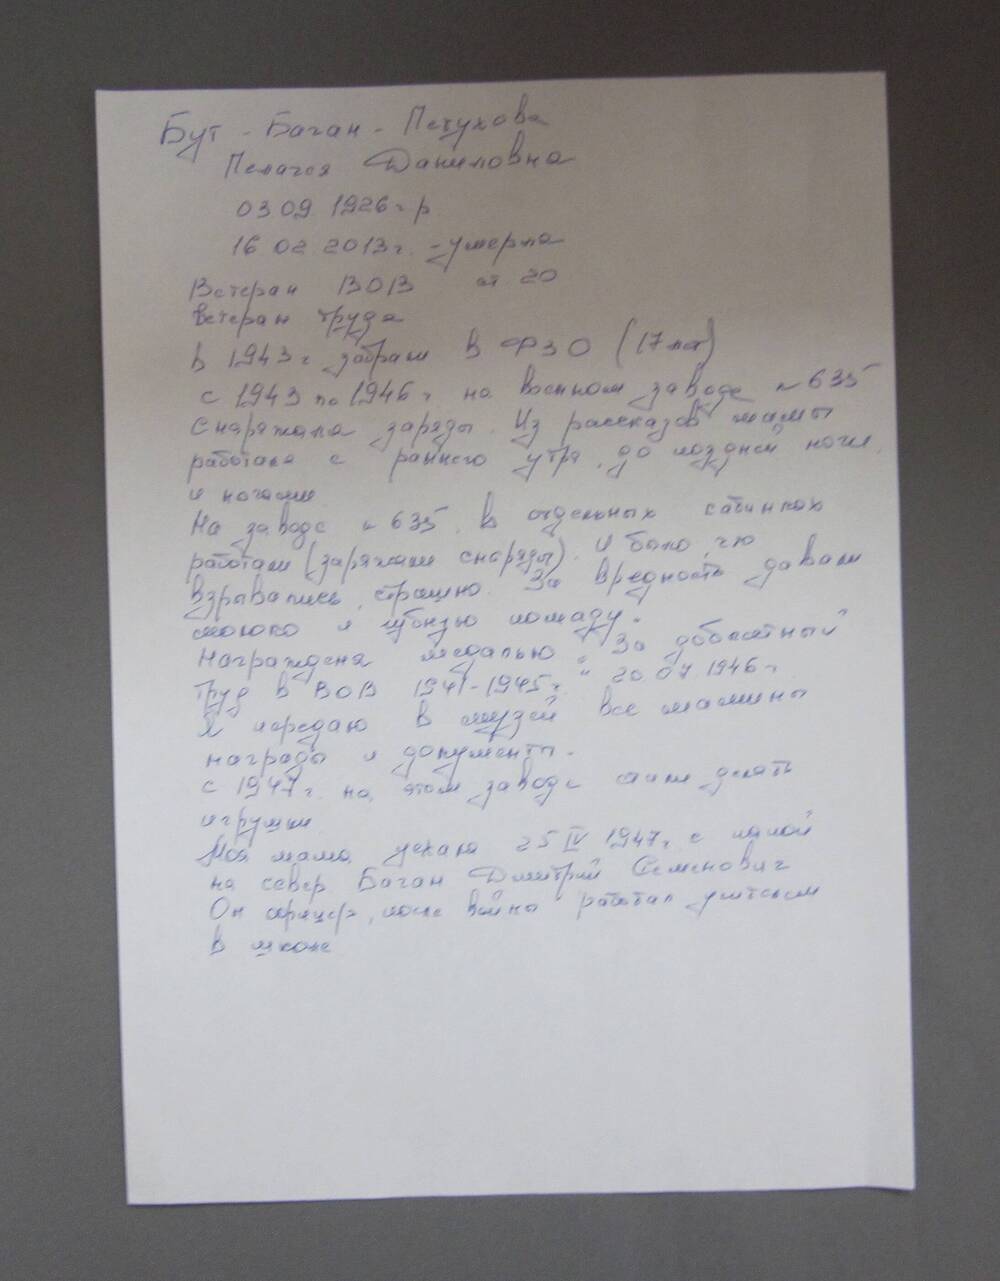 Бут - Баган - Петухова
Пелагея Даниловна
03 09 1926 г р
16 02 2013 г. - умерла
Ветеран ВОВ ст 20
Ветеран труда
в 1943 г забрали в ФЗО (17 лет)
с 1943 по 1946 г на военном заводе № 635
снаряжала заряды. Из рассказов мамы
работала с раннего утра до поздней ночи
и ночами
На заводе № 635 в отдельных кабинках
работали (заряжали снаряды). И было, что
взрывались, страшно. За вредность давали
молоко и губную помаду.
Награждена медалью "За доблестный
труд в ВОВ 1941-1945 г." 20 04 1946 г
Я передаю в музей все мамины
награды и документы.
с 1947 г. на этом заводе стали делать
игрушки
Моя мама уехала 25 IV 1947 г. с папой
на север Баган Дмитрий Семенович
Он офицер, после войны работал учителем
в школе